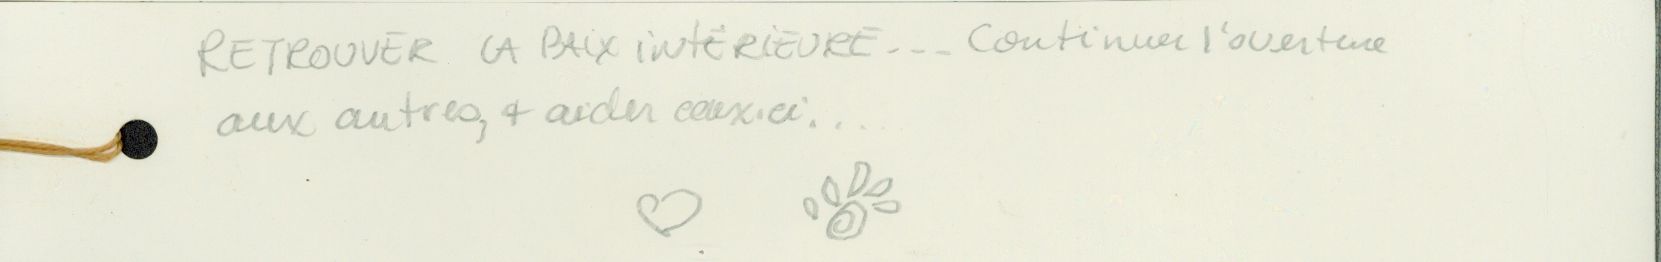 RETROUVER LA PAIX INTÉRIEURE... Continuer l'ouverture
aux autres, & aider ceux-ci....